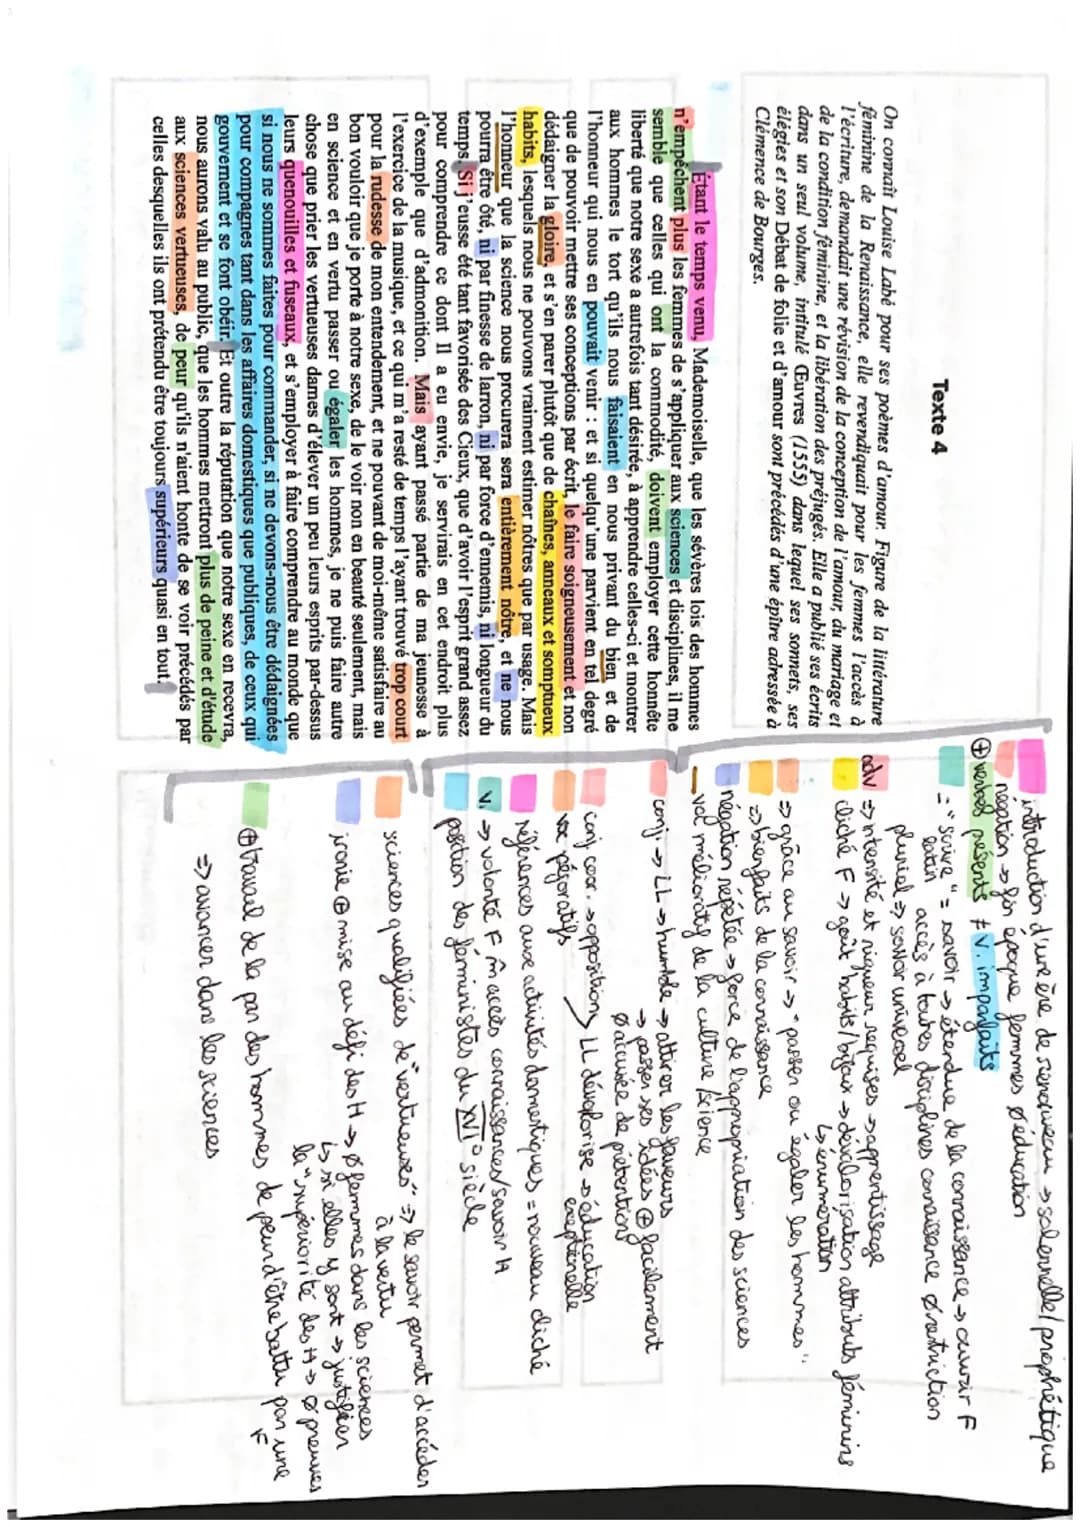 Texte 4
On connaît Louise Labé pour ses poèmes d'amour. Figure de la littérature
féminine de la Renaissance, elle revendiquait pour les femmes l'accès à
l'écriture, demandait une révision de la conception de l'amour, du mariage et
de la condition féminine, et la libération des préjugés. Elle a publié ses écrits
dans un seul volume, intitulé Œuvres (1555) dans lequel ses sonnets, ses
élégies et son Débat de folie et d'amour sont précédés d'une épître adressée à
Clémence de Bourges.
Étant le temps venu, Mademoiselle, que les sévères lois des hommes
n'empêchent plus les femmes de s'appliquer aux sciences et disciplines, il me
semble que celles qui ont la commodité, doivent employer cette honnête
liberté que notre sexe a autrefois tant désirée, à apprendre celles-ci et montrer
aux hommes le tort qu'ils nous faisaient en nous privant du bien et de
l'honneur qui nous en pouvait venir : et si quelqu'une parvient en tel degré
que de pouvoir mettre ses conceptions par écrit, le faire soigneusement et non
dédaigner la gloire, et s'en parer plutôt que de chaînes, anneaux et somptueux
habits, lesquels nous ne pouvons vraiment estimer nôtres que par usage. Mais
l'honneur que la science nous procurera sera entièrement nôtre, et ne nous
pourra être ôté, ni par finesse de larron, ni par force d'ennemis, ni longueur du
temps. Si j'eusse été tant favorisée des Cieux, que d'avoir l'esprit grand assez
pour comprendre ce dont il a eu envie, je servirais en cet endroit plus
d'exemple que d'admonition. Mais ayant passé partie de ma jeunesse à
l'exercice de la musique, et ce qui m'a resté de temps l'ayant trouvé trop court
pour la rudesse de mon entendement, et ne pouvant de moi-même satisfaire au
bon vouloir que je porte à notre sexe, de le voir non en beauté seulement, mais
en science et en vertu passer ou égaler les hommes, je ne puis faire autre
chose que prier les vertueuses dames d'élever un peu leurs esprits par-dessus
leurs quenouilles et fuseaux, et s'employer à faire comprendre au monde que
si nous ne sommes faites pour commander, si ne devons-nous être dédaignées
pour compagnes tant dans les affaires domestiques que publiques, de ceux qui
gouvernent et se font obéir. Et outre la réputation que notre sexe en recevra,
nous aurons valu au public, que les hommes mettront plus de peine et d'étude
aux sciences vertueuses, de peur qu'ils n'aient honte de se voir précédés par
celles desquelles ils ont prétendu être toujours supérieurs quasi en tout.
introduction d'une ère de renouveau → solennelle/prophétique
négation → fin époque femmes ø éducation
⊕ verbes présents ≠ V. imparfaits
= "scire" = savoir → étendue de la connaissance → ouvrir F
latin accès à toutes disciplines connaissance ø restriction
pluriel => savoir universel
adv => intensité et rigueur requises → apprentissage
cliché F → goût habits/bijoux → dévalorisation attributs féminins
↳ énumération
=> grâce au savoir → "passer ou égaler les hommes".
=> bienfaits de la connaissance
négation répétée → force de l'appropriation des sciences
voc mélioratif de la culture/science
conj → LL → humble → attirer les faveurs
→ passer ses idées ⊕ facilement
ø accusée de prétention
conj coor. → opposition
voc péjoratifs
LL dévalorise → éducation
exceptionnelle
références aux activités domestiques = nouveau cliché
V. → volonté F m̂ accès connaissances/savoir H
position des féministes du XVI° siècle
sciences qualifiées de "vertueuses" => le savoir permet d'accéder
à la vertu
ironie ⊕ mise au défi des H → ø femmes dans les sciences
↳ si elles y sont → justifier
la "supériorité des H → ø preuves
⊕ travail de la par des hommes de peur d'être battu par une
F
=> avancer dans les sciences